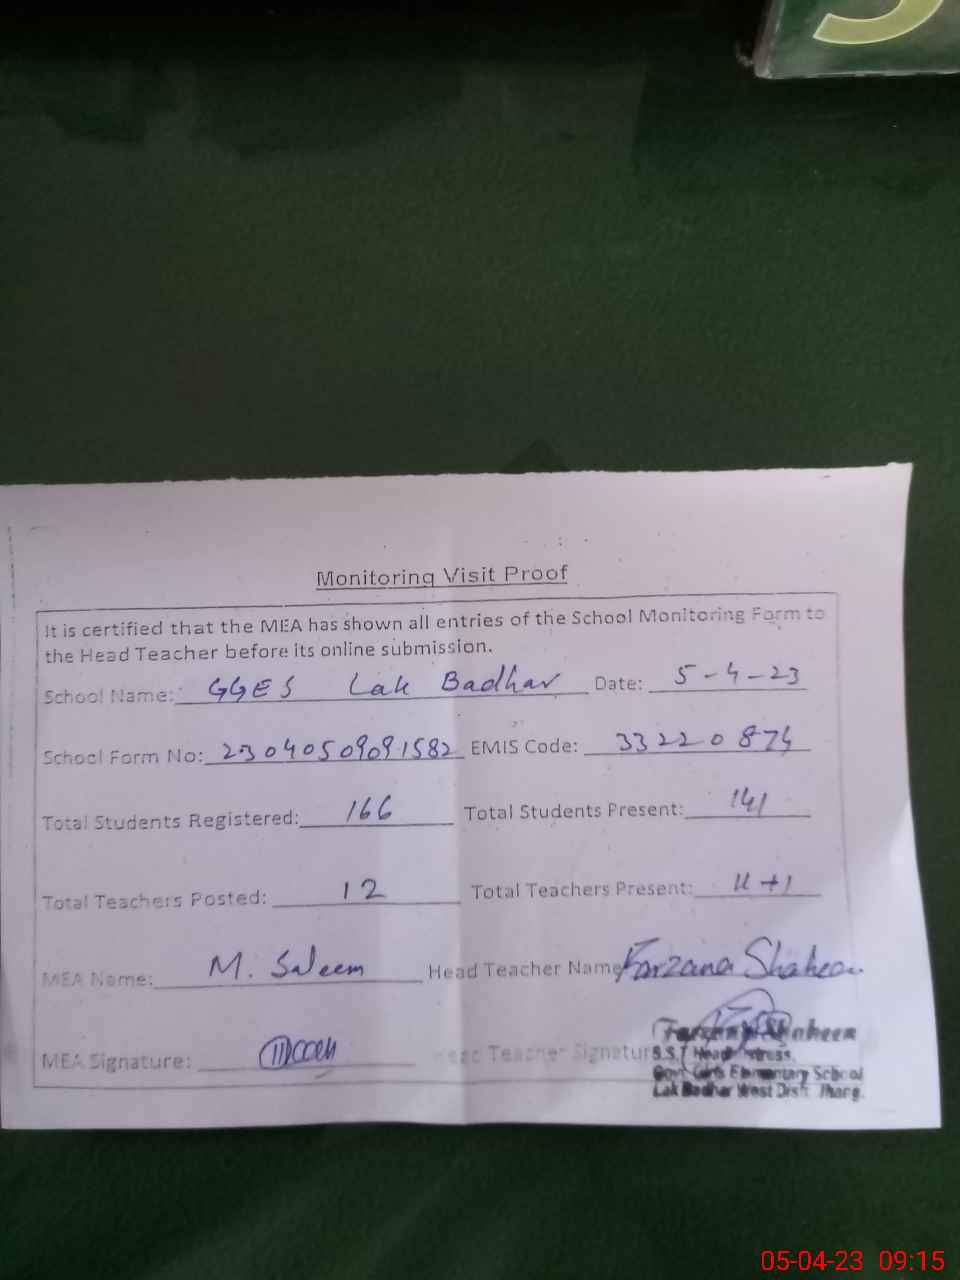 Monitoring Visit Proof
It is certified that the MEA has shown all entries of the School Monitoring Form to
the Head Teacher before its online submission.
School Name: GGES Lak Badhar Date: 5-4-23
School Form No: 23040509091582 EMIS Code: 33220874
Total Students Registered: 166 Total Students Present: 141
Total Teachers Posted: 12 Total Teachers Present: 11+1
MEA Name: M. Saleem Head Teacher Name Farzana Shaheen
MEA Signature: Head Teacher Signature
Farzana Shaheen
S.S.T Headmistress,
Govt. Girls Elementary School
Lak Badhar West Distt Jhang.
05-04-23 09:15